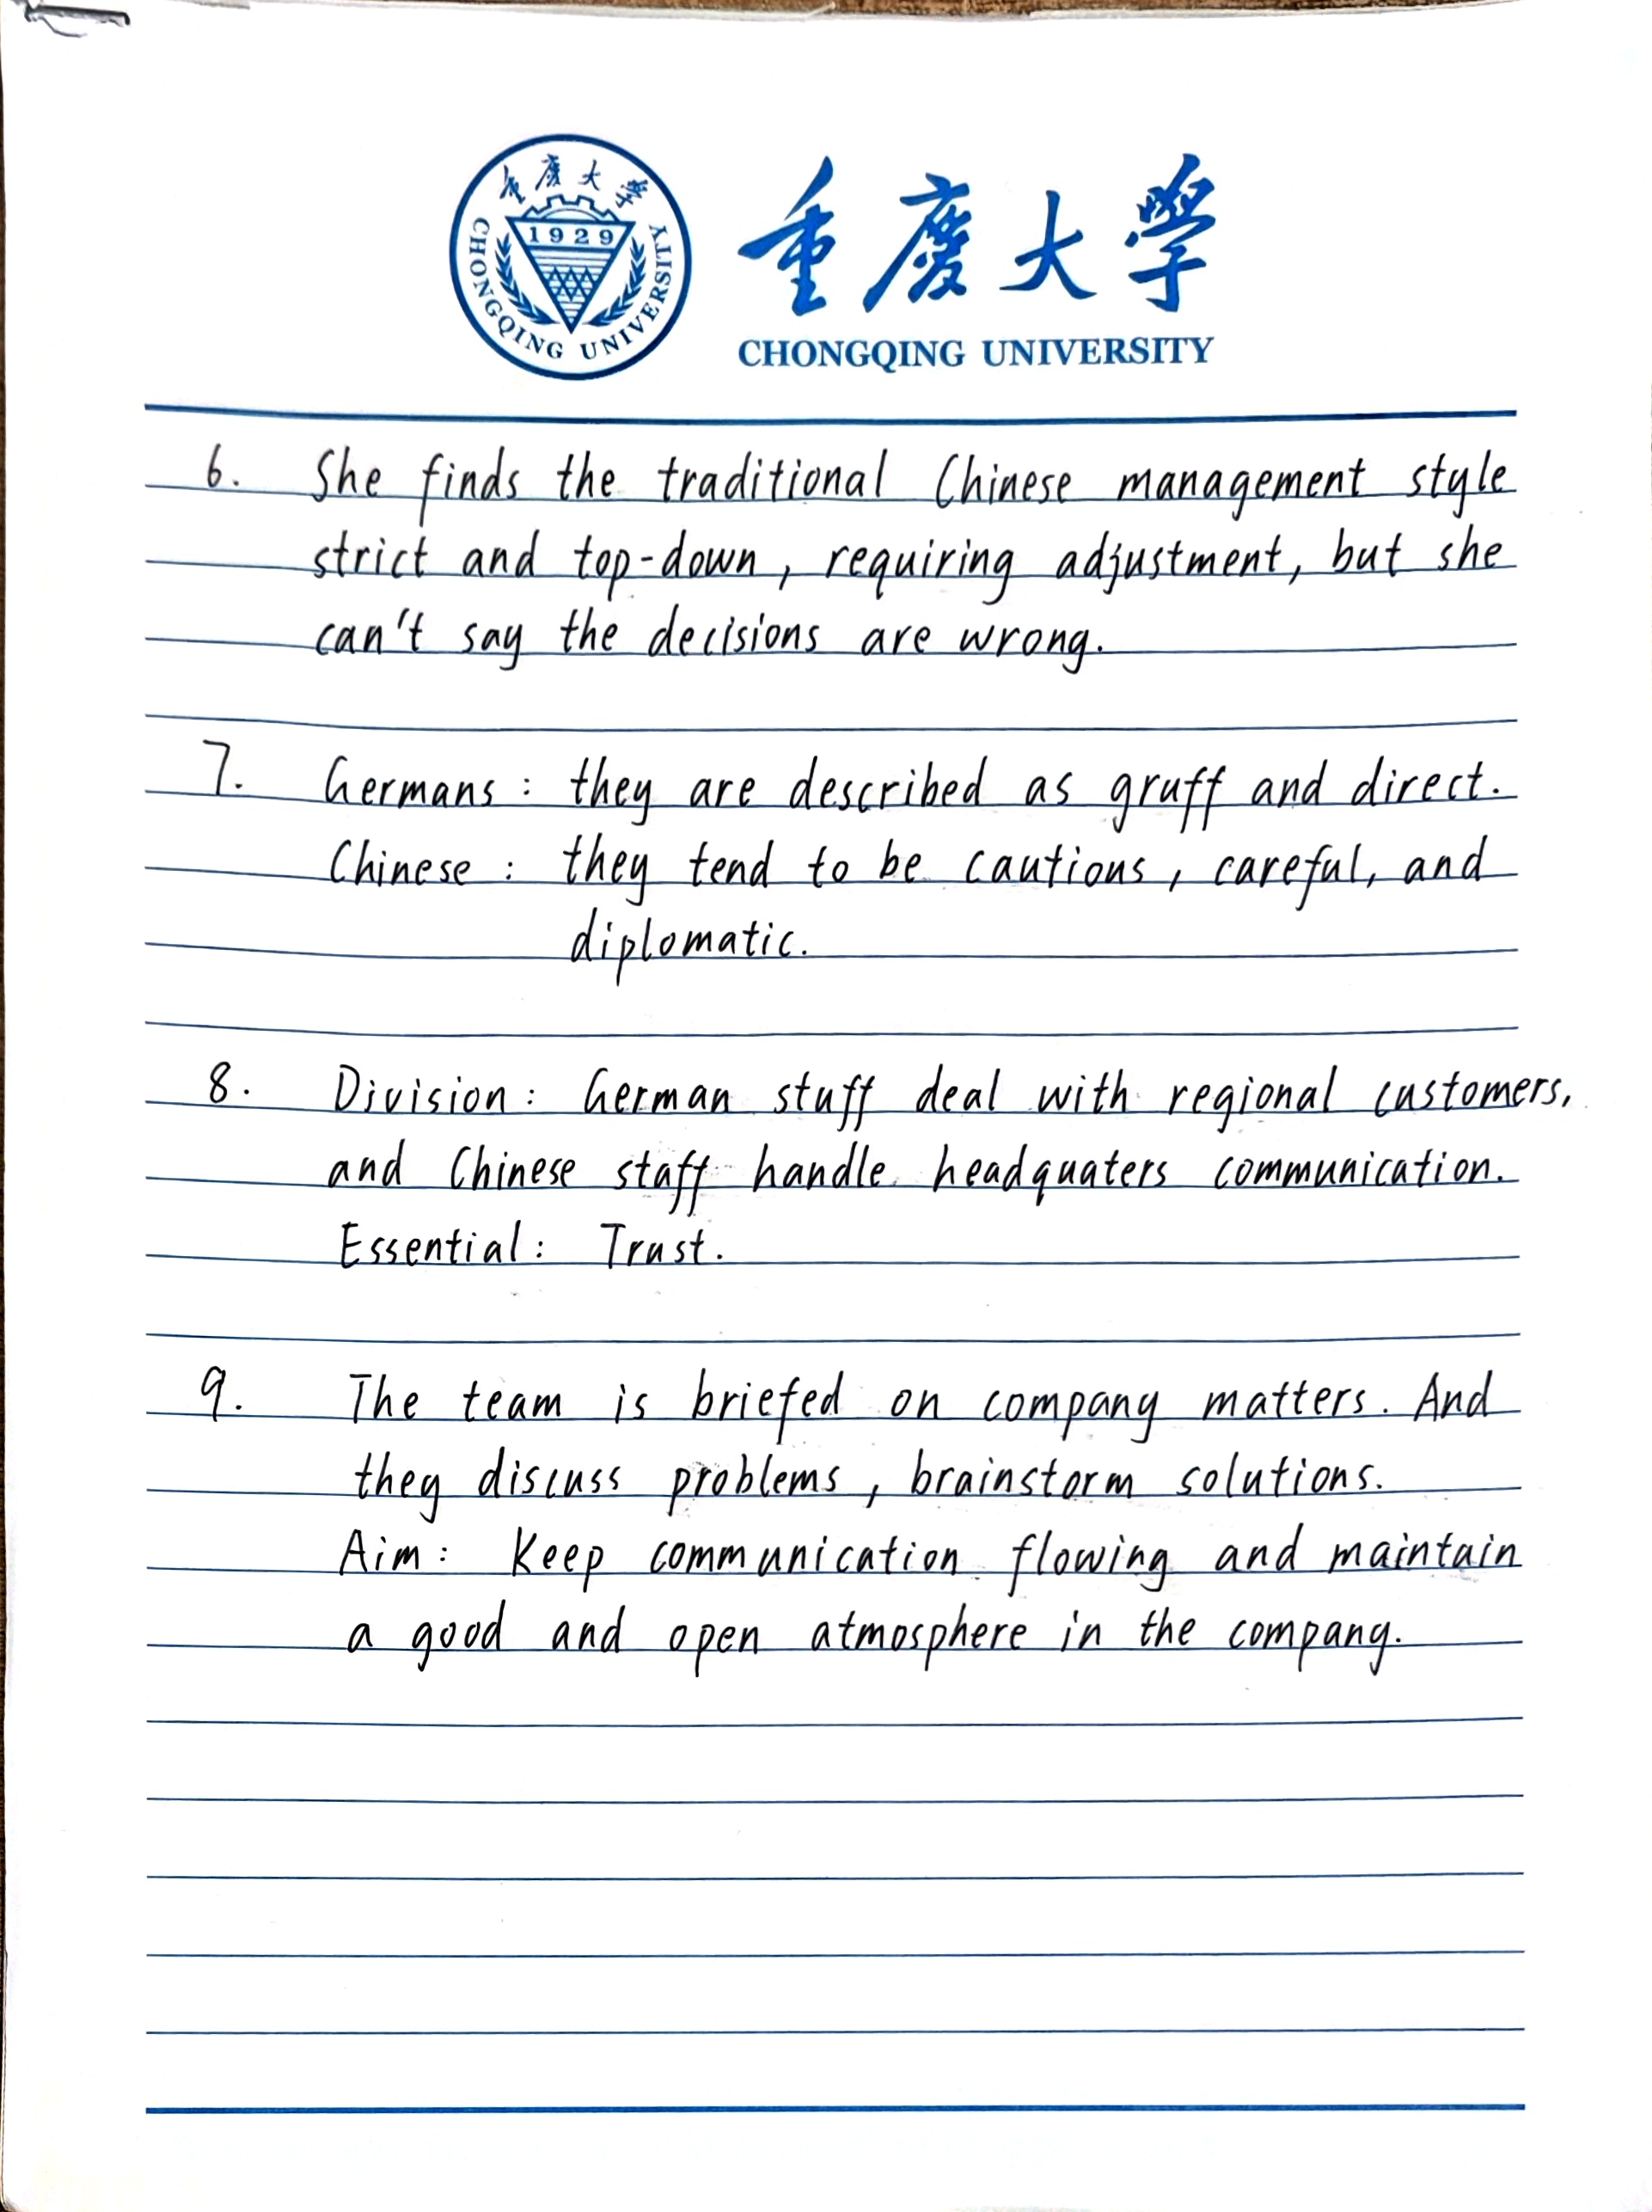 重慶大學
1929
CHONGQING UNIVERSITY
重慶大學
CHONGQING UNIVERSITY
6. She finds the traditional Chinese management style
strict and top-down, requiring adjustment, but she
can't say the decisions are wrong.
7. Germans: they are described as gruff and direct.
Chinese: they tend to be cautions, careful, and
diplomatic.
8. Division: German stuff deal with regional customers,
and Chinese staff handle headquaters communication.
Essential: Trust.
9. The team is briefed on company matters. And
they discuss problems, brainstorm solutions.
Aim: Keep communication flowing and maintain
a good and open atmosphere in the company.